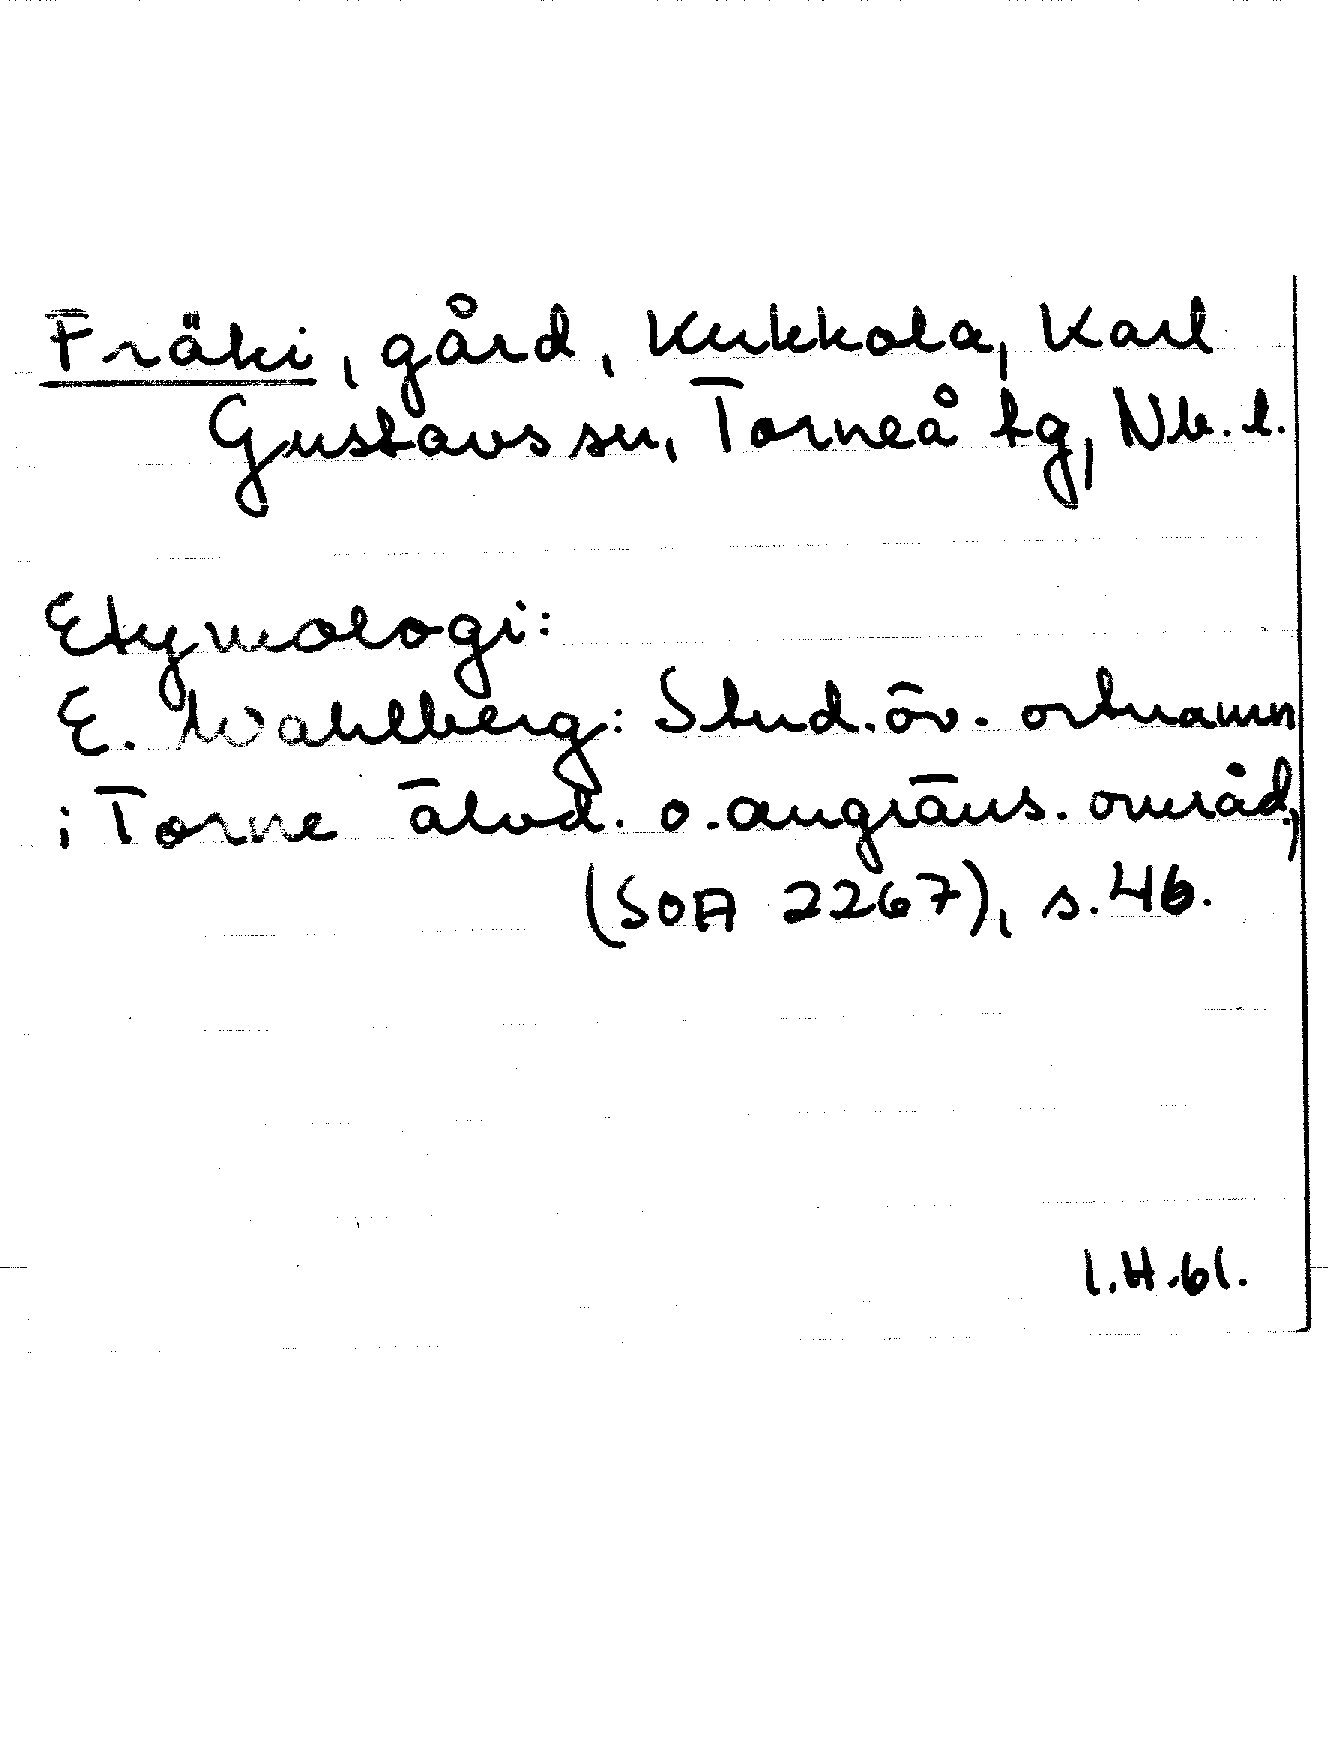 Fräki, gård, Kukkola, Karl
Gustavs sn, Torneå tg, Nb. l.
Etymologi:
E. Wahlberg: Stud. öv. ortnamn
i Torne älvd. o. angräns. områd.,
(SOA 2267), s. 46.
I.H.61.